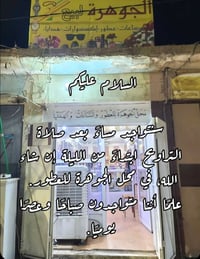 الجوهرة للبيع
السلام عليكم
محل جوهرة للعطور و
سنتواجد مساءً بعد صلاة
التراويح ابتداءً من الليلة إن شاء
الله، في محل الجوهرة للعطور.
علمًا أننا متواجدون صباحًا وعصرًا
يوميًا.